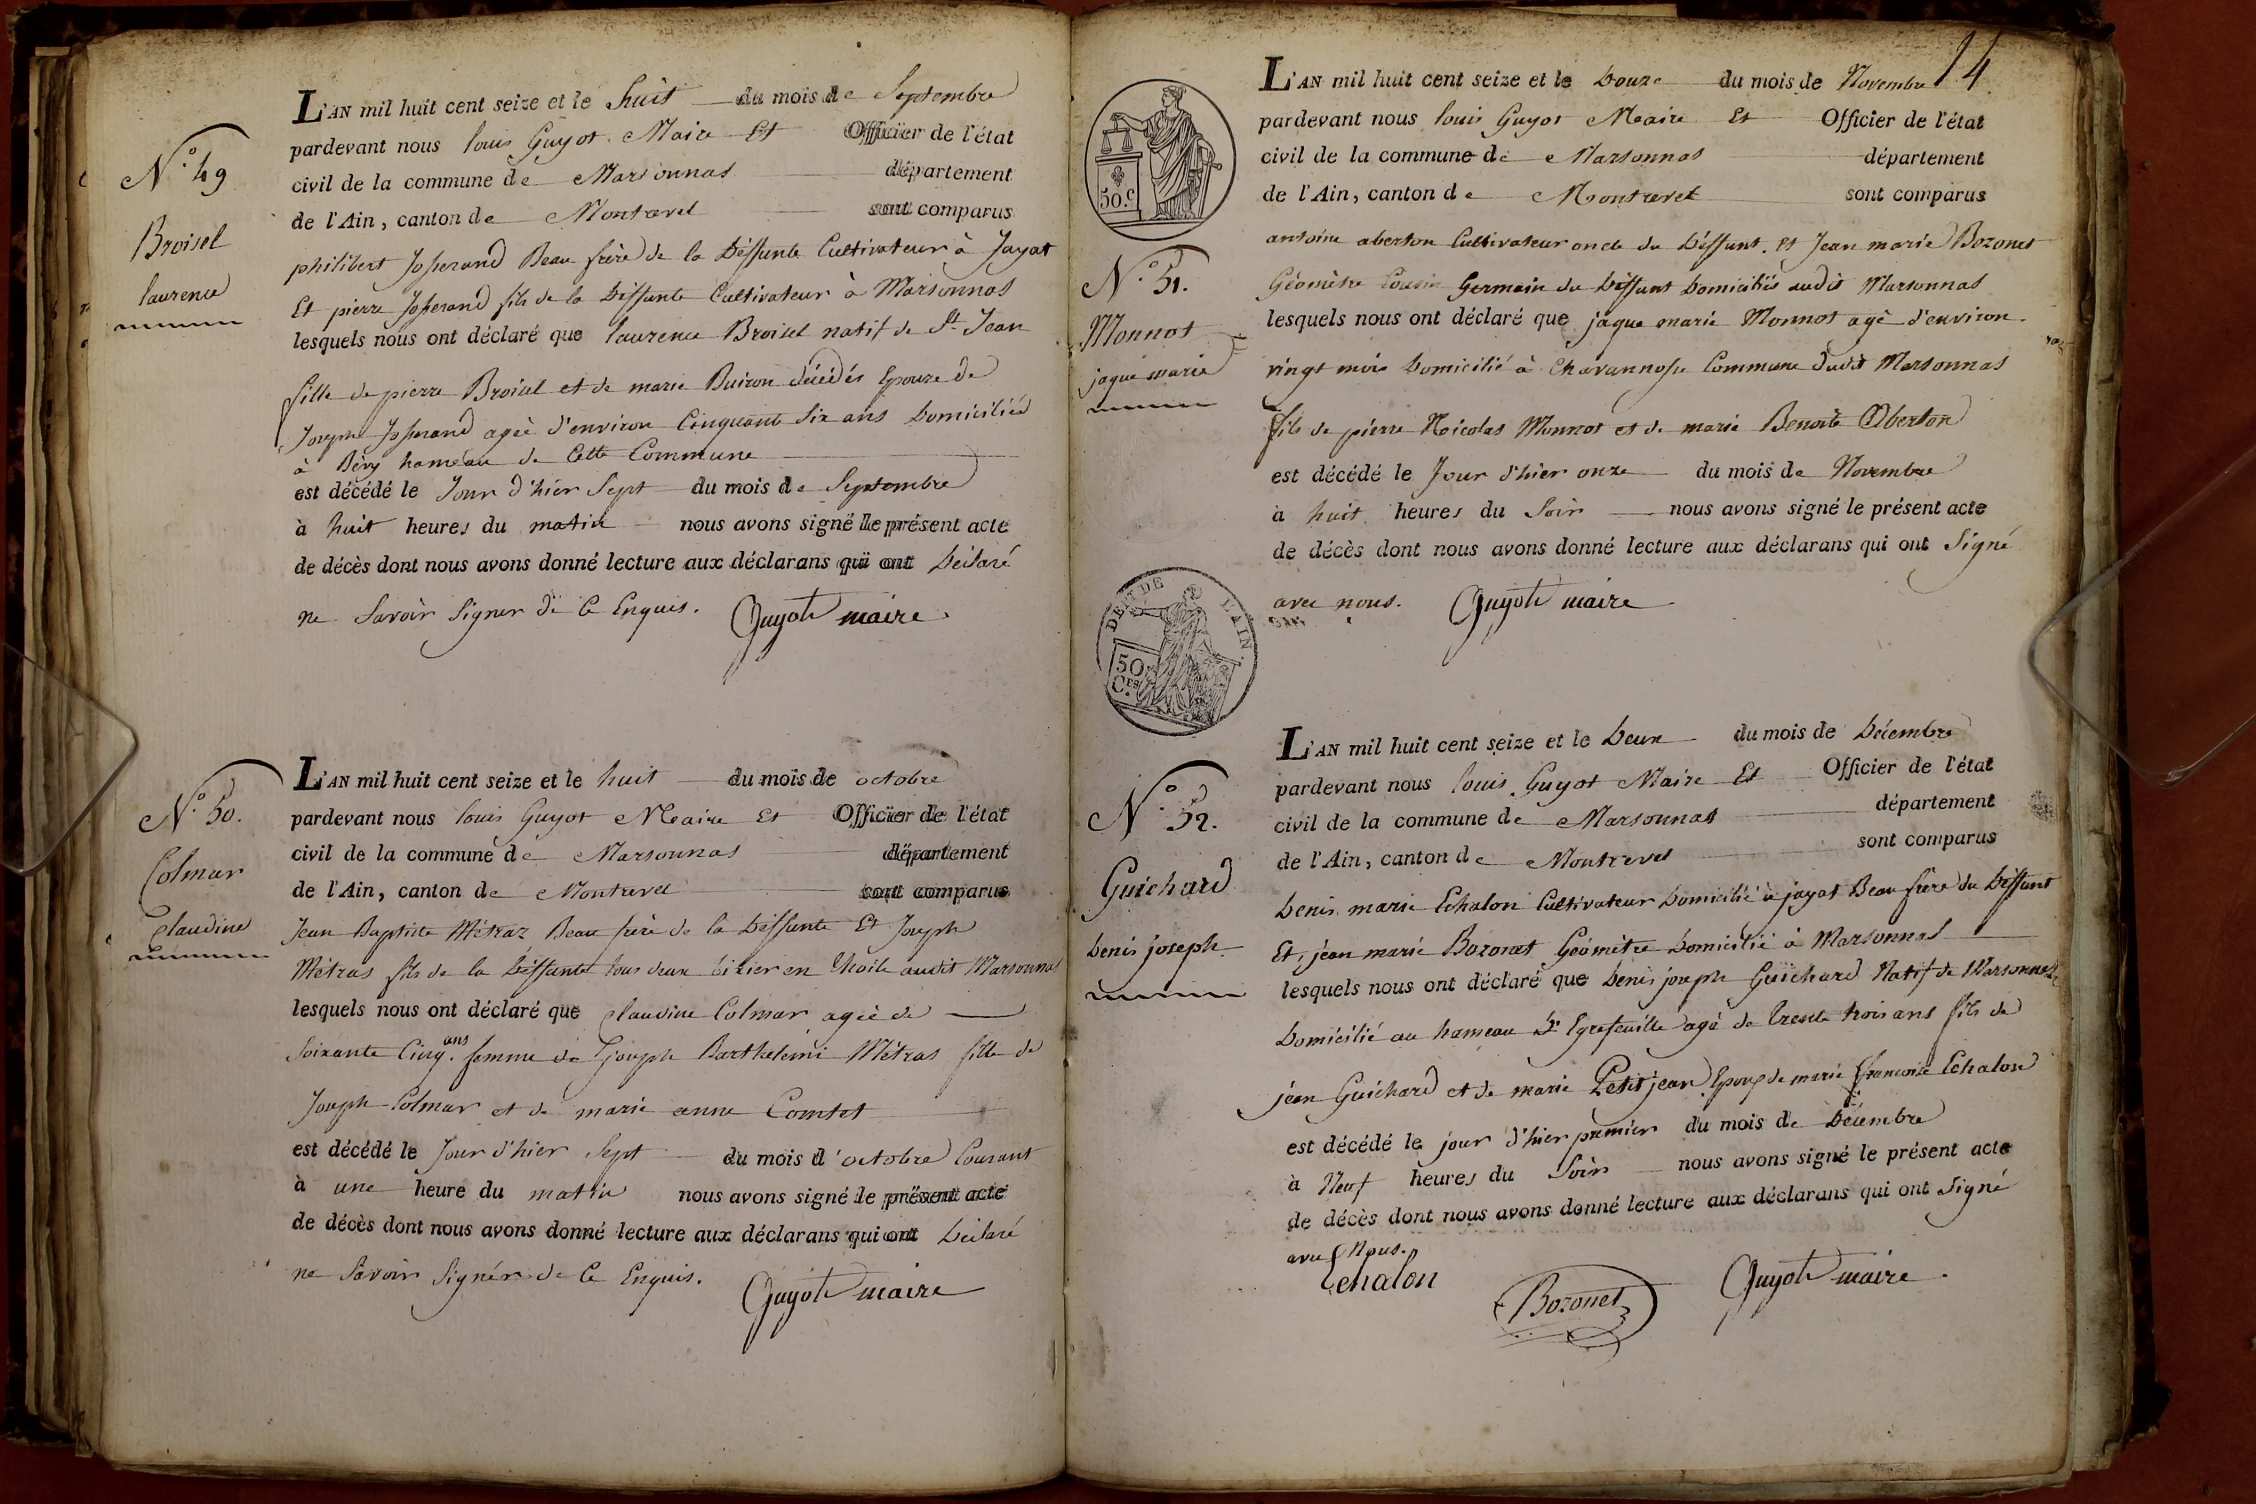 N.° 49
Broisel
laurence
L'AN mil huit cent seize et le huit du mois de Septembre
pardevant nous louis Guyot Maire Et Officier de l'état
civil de la commune de Marsonnas département
de l'Ain, canton de Montrevel sont comparus
philibert Josserand Beau frère de la Deffunte Cultivateur à Jayat
Et pierre Josserand fils de la Deffunte Cultivateur à Marsonnas
lesquels nous ont déclaré que laurence Broisel natif de St. Jean
fille de pierre Broisel et de marie Buiron décédés Epouze de
Joseph Josserand agée d'environ Cinquante Six ans Domiciliée
à Béry hameau de Cette Commune
est décédé le Jour d'hier Sept du mois de Septembre
à huit heures du matin nous avons signé le présent acte
de décès dont nous avons donné lecture aux déclarans qui ont Déclaré
ne Savoir Signer de Ce Enquis. Guyot maire
N.° 50.
Colmar
Claudine
L'AN mil huit cent seize et le huit du mois de octobre
pardevant nous louis Guyot Maire Et Officier de l'état
civil de la commune de Marsonnas département
de l'Ain, canton de Montrevel sont comparus
Jean Baptiste Métraz Beau frère de la Deffunte Et Joseph
Métras fils de la Deffunte tous deux en audit Marsonnas
lesquels nous ont déclaré que Claudine Colmar agée de
Soixante Cinq ans femme de Joseph Barthelemi Métras fille de
Joseph Colmar et de marie anne Comtet
est décédé le Jour d'hier Sept du mois d'octobre Courant
à une heure du matin nous avons signé le présent acte
de décès dont nous avons donné lecture aux déclarans qui ont Déclaré
ne Savoir Signér de Ce Enquis. Guyot maire
14
50.c
N.° 51.
Monnot
jaque marie
L'AN mil huit cent seize et le Douze du mois de Novembre
pardevant nous louis Guyot Maire Et Officier de l'état
civil de la commune de Marsonnas département
de l'Ain, canton de Montrevel sont comparus
antoine aberton Cultivateur oncle du Deffunt. Et Jean marie Bozonet
Géomètre Cousin Germain du Deffunt Domiciliés audit Marsonnas
lesquels nous ont déclaré que jaque marie Monnot agé d'environ
vingt mois Domicilié à Chavannosse Commune dudit Marsonnas
fils de pierre Nicolas Monnot et de marie Benoite Oberton
est décédé le Jour d'hier onze du mois de Novembre
à huit heures du Soir nous avons signé le présent acte
de décès dont nous avons donné lecture aux déclarans qui ont Signé
avec nous. Guyot maire
DEPT DE L'AIN.
50 Ces
N.° 52.
Guichard
Denis joseph
L'AN mil huit cent seize et le Deux du mois de Décembre
pardevant nous louis Guyot Maire Et Officier de l'état
civil de la commune de Marsonnas département
de l'Ain, canton de Montrevel sont comparus
Denis marie Echalon Cultivateur Domicilié à jayat Beau frère du Deffunt
Et jean marie Bozonet Géomètre Domicilié à Marsonnas
lesquels nous ont déclaré que Denis joseph Guichard Natif de Marsonnas
Domicilié au hameau D'Egrefeuille agé de trente trois ans fils de
jean Guichard et de marie Petitjean Epoux de marie francoise Echalon
est décédé le jour d'hier premier du mois de Décembre
à Neuf heures du Soir nous avons signé le présent acte
de décès dont nous avons donné lecture aux déclarans qui ont Signé
avec Nous.
Echalon Bozonet Guyot maire